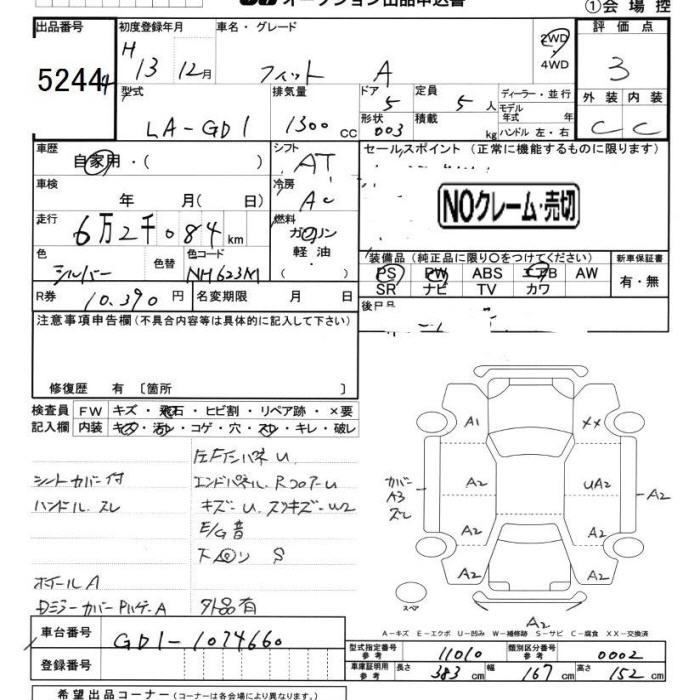 オークション出品申込書
①会場控
出品番号 初度登録年月 車名・グレード 評価点
52444 H 13 12月 フィット A 2WD 4WD 3
型式 排気量 ドア 定員 ディーラー・並行 外装 内装
LA-GD1 1300cc 5 5人 モデル年式 年式 C C
形状 003 積載 kg ハンドル 左・右
車歴 自家用・( ) シフト AT セールスポイント (正常に機能するものに限ります)
車検 年 月( 日) 冷房 AC
NOクレーム・売切
走行 6万2千084km 燃料 ガソリン 軽油 ( )
色 シルバー 色替 色コード NH623M
装備品 (純正品に限り○をつけてください) 新車保証書
PS PW ABS エアB AW 有・無
SR ナビ TV カワ
R券 10,390円 名変期限 月 日
注意事項申告欄(不具合内容等は具体的に記入して下さい)
修復歴 有 [箇所 ]
検査員記入欄 FW キズ・飛石・ヒビ割・リペア跡・×要
内装 キズ・汚レ・コゲ・穴・スレ・キレ・破レ
シートカバー付 エンドパネル, RコアーU
ハンドル, スレ キズーU スリキズーW2
E/G音
S
ホイールA
外品有
A1 XX
カバー A3 スレ A2 UA2 A2
A2 A2
A2 A2
スペア A2
A-キズ E-エクボ U-凹み W-補修跡 S-サビ C-腐食 XX-交換済
車台番号 GD1-1074660
型式指定番号 参考 11010 類別区分番号 参考 0002
登録番号 車庫証明用 参考 長さ 383cm 幅 167cm 高さ 152cm
希望出品コーナー (コーナーは各会場により異なります。)